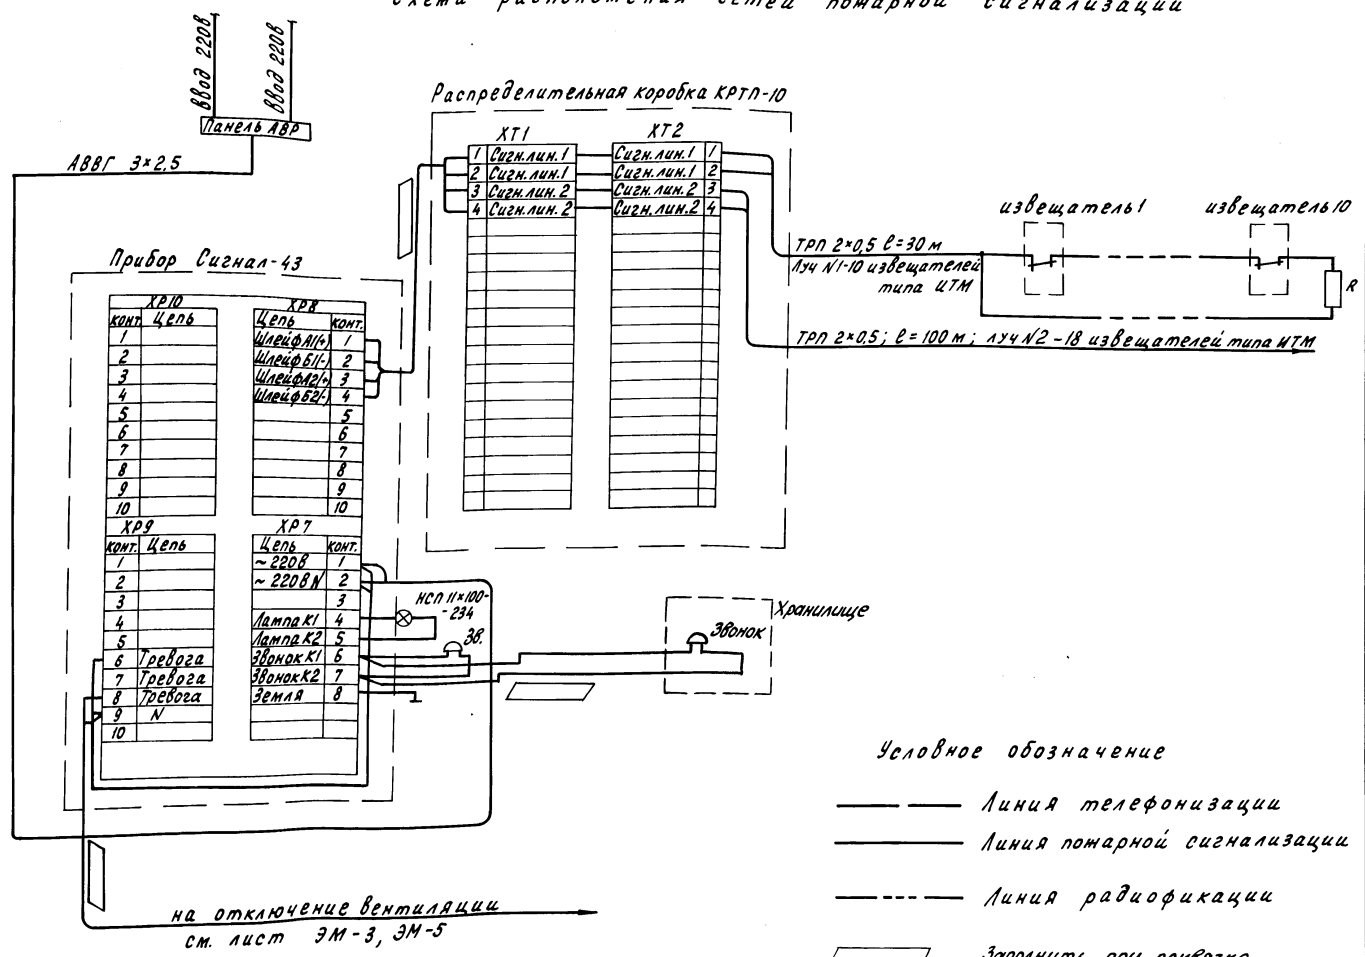 Схема расположения сетей пожарной сигнализации
Ввод 220в
Ввод 220в
Панель АВР
АВВГ 3×2,5
Распределительная коробка КРТП-10
ХТ1
1 Сигн.лин.1
2 Сигн.лин.1
3 Сигн.лин.2
4 Сигн.лин.2
ХТ2
Сигн.лин.1 1
Сигн.лин.1 2
Сигн.лин.2 3
Сигн.лин.2 4
извещатель 1
извещатель 10
ТРП 2×0,5 ℓ=30 м
Луч N1-10 извещателей
типа ИТМ
R
ТРП 2×0,5; ℓ=100 м; луч N2-18 извещателей типа ИТМ
Прибор Сигнал-43
ХР10
конт. Цепь
1
2
3
4
5
6
7
8
9
10
ХР8
Цепь конт.
Шлейф А1(+) 1
Шлейф Б1(-) 2
Шлейф А2(+) 3
Шлейф Б2(-) 4
5
6
7
8
9
10
ХР9
конт. Цепь
1
2
3
4
5
6 Тревога
7 Тревога
8 Тревога
9 N
10
ХР7
Цепь конт.
~ 220в 1
~ 220в N 2
3
Лампа К1 4
Лампа К2 5
Звонок К1 6
Звонок К2 7
Земля 8
НСП 11×100-
-234
Зв.
Звонок
Хранилище
на отключение вентиляции
см. лист ЭМ-3, ЭМ-5
Условное обозначение
Линия телефонизации
Линия пожарной сигнализации
Линия радиофикации
Заполнить при привязке